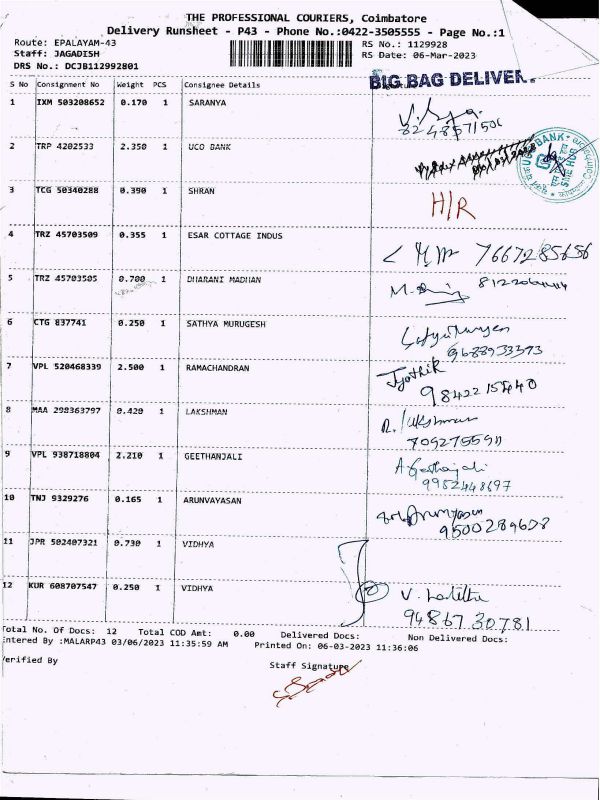 THE PROFESSIONAL COURIERS, Coimbatore
Delivery Runsheet - P43 - Phone No.:0422-3505555 - Page No.:1
Route: EPALAYAM-43
RS No.: 1129928
Staff: JAGADISH
RS Date: 06-Mar-2023
DRS No.: DCJB112992801
BIG BAG DELIVER.
S No Consignment No Weight PCS Consignee Details
1 IXM 503208652 0.170 1 SARANYA
2 TRP 4202533 2.350 1 UCO BANK
UCO BANK
SME HUB
3 TCG 50340288 0.390 1 SHRAN
H/R
4 TRZ 45703509 0.355 1 ESAR COTTAGE INDUS
7667285656
5 TRZ 45703505 0.700 1 DHARANI MADHAN
6 CTG 837741 0.250 1 SATHYA MURUGESH
7 VPL 520468339 2.500 1 RAMACHANDRAN
Jyothik
8 MAA 298363797 0.420 1 LAKSHMAN
R. lakshman
9 VPL 938718804 2.210 1 GEETHANJALI
9952448697
10 TNJ 9329276 0.165 1 ARUNVAYASAN
11 JPR 502407321 0.730 1 VIDHYA
12 KUR 608707547 0.250 1 VIDHYA
9486730781
Total No. Of Docs: 12 Total COD Amt: 0.00 Delivered Docs: Non Delivered Docs:
Entered By :MALARP43 03/06/2023 11:35:59 AM Printed On: 06-03-2023 11:36:06
Verified By
Staff Signature